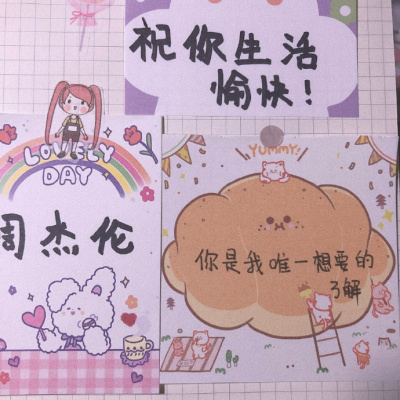 祝你生活
愉快!
LOVELY
DAY
周杰伦
YUMMY!
你是我唯一想要的
了解